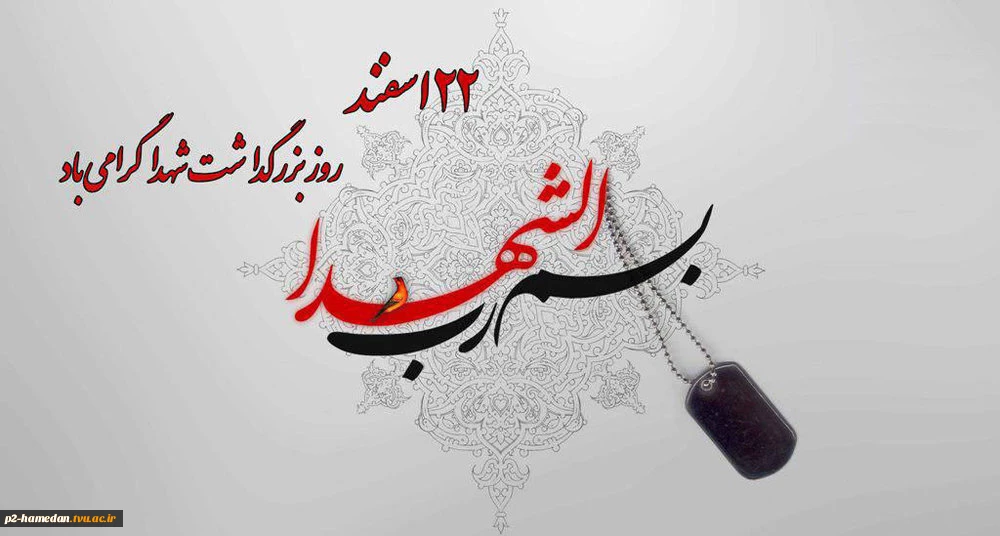 ۲۲ اسفند
روز بزرگداشت شهدا گرامی باد
بسم رب
الشهدا
p2-hamedan.tvu.ac.ir